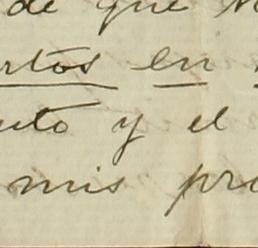 de que
rtos en
uto y el
mis pro